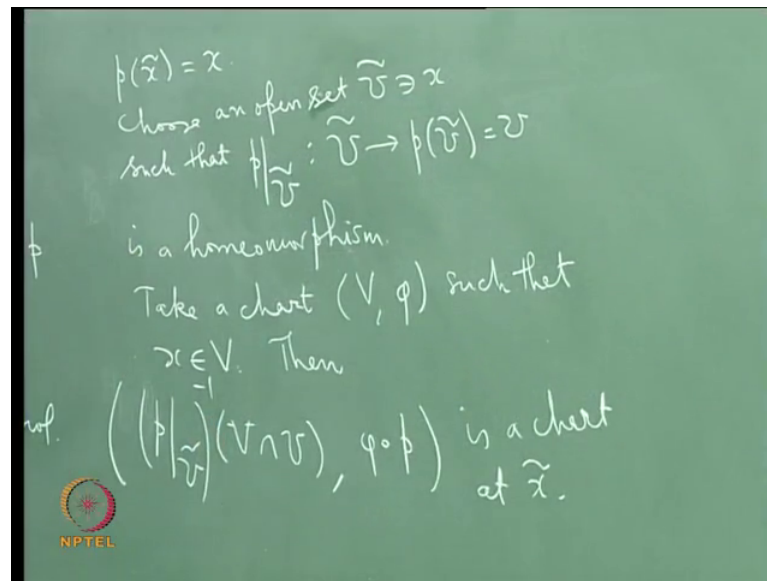 p(x̃) = x.
Choose an open set Ũ ∋ x
such that p|_Ũ : Ũ → p(Ũ) = U
p is a homeomorphism.
Take a chart (V, φ) such that
x ∈ V. Then
((p|_Ũ)^{-1}(V ∩ U), φ∘p) is a chart
at x̃.
NPTEL